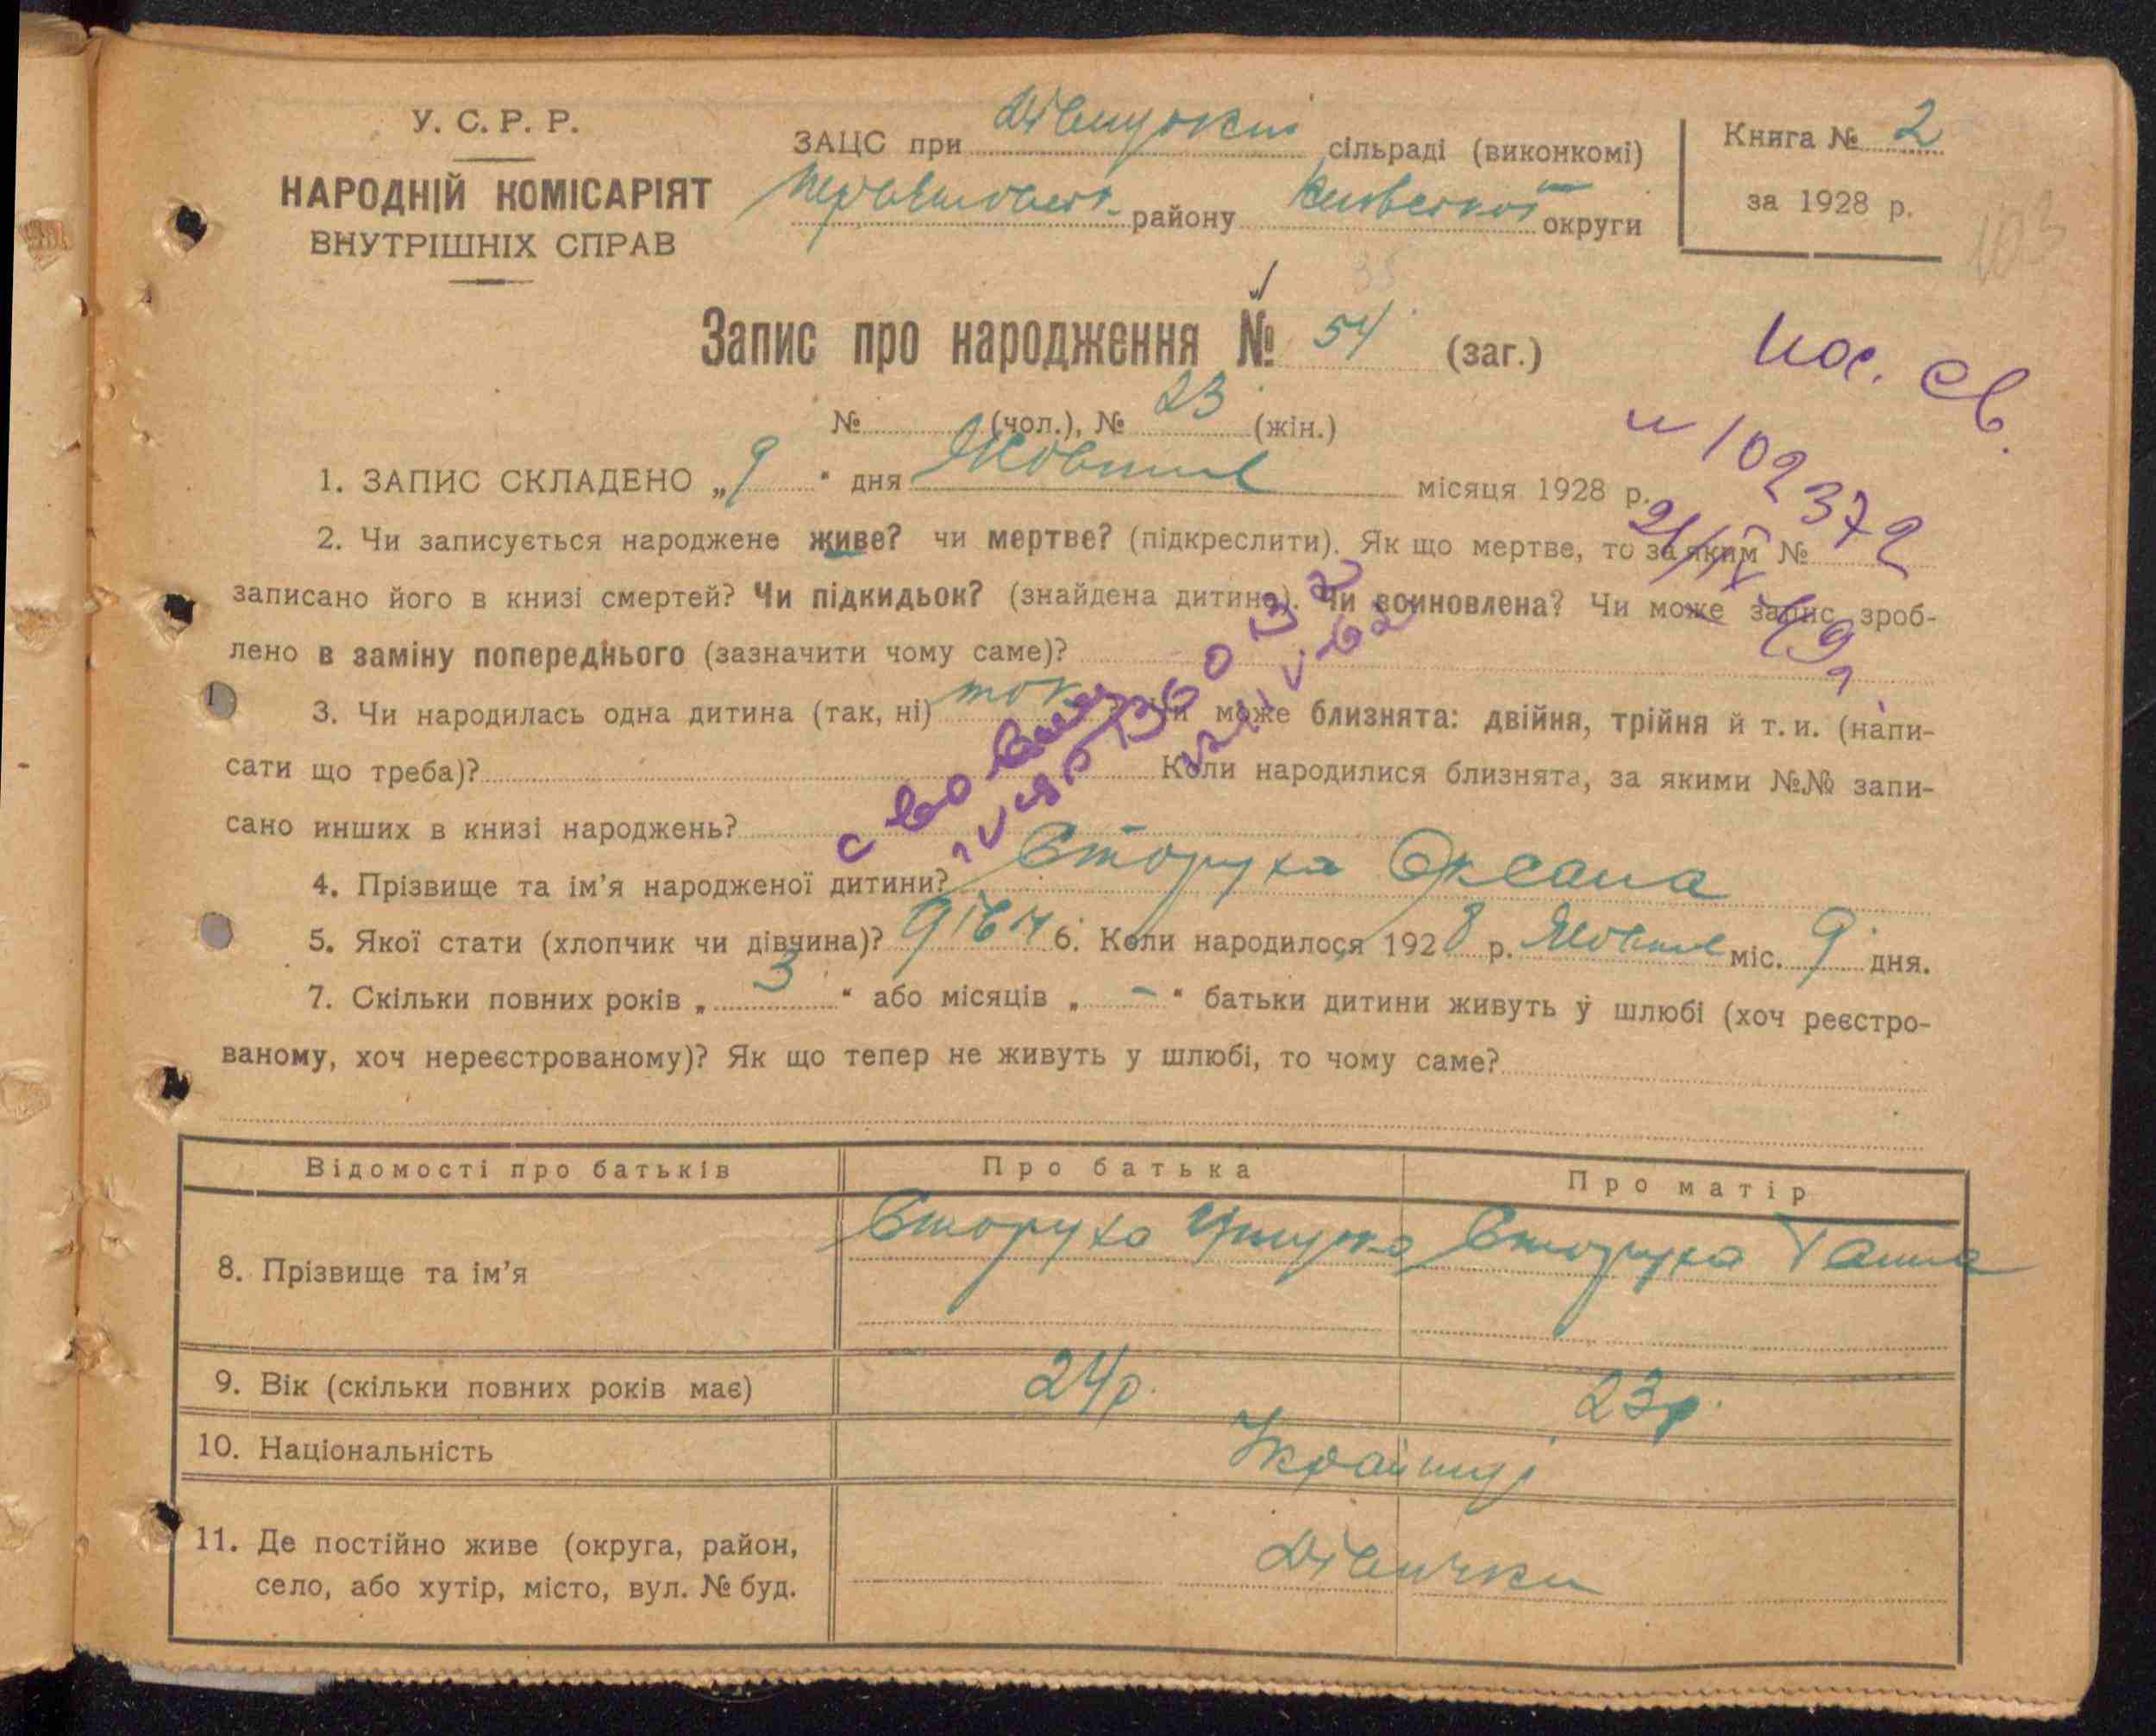 У. С. Р. Р.
НАРОДНІЙ КОМІСАРІЯТ
ВНУТРІШНІХ СПРАВ
ЗАЦС при сільраді (виконкомі)
району округи
Книга № 2
за 1928 р.
103
Запис про народження № 54 (заг.)
№ (чол.), № 23 (жін.)
1. ЗАПИС СКЛАДЕНО „9“ дня Жовтня місяця 1928 р.
2. Чи записується народжене живе? чи мертве? (підкреслити). Як що мертве, то за яким №
записано його в книзі смертей? Чи підкидьок? (знайдена дитина). Чи всиновлена? Чи може запис зроб-
лено в заміну попереднього (зазначити чому саме)?
3. Чи народилась одна дитина (так, ні) так Чи може близнята: двійня, трійня й т. и. (напи-
сати що треба)? Коли народилися близнята, за якими №№ запи-
сано инших в книзі народжень?
4. Прізвище та ім’я народженої дитини? Сторуха Оксана
5. Якої стати (хлопчик чи дівчина)? дівч 6. Коли народилося 1928 р. Жовтня міс. 9 дня.
7. Скільки повних років „3“ або місяців „-“ батьки дитини живуть у шлюбі (хоч реєстро-
ваному, хоч нереєстрованому)? Як що тепер не живуть у шлюбі, то чому саме?
Відомості про батьків Про батька Про матір
8. Прізвище та ім’я Сторуха Сторуха Ганна
9. Вік (скільки повних років має) 24р. 23р.
10. Національність Українці
11. Де постійно живе (округа, район, Дівички
село, або хутір, місто, вул. № буд.
102372